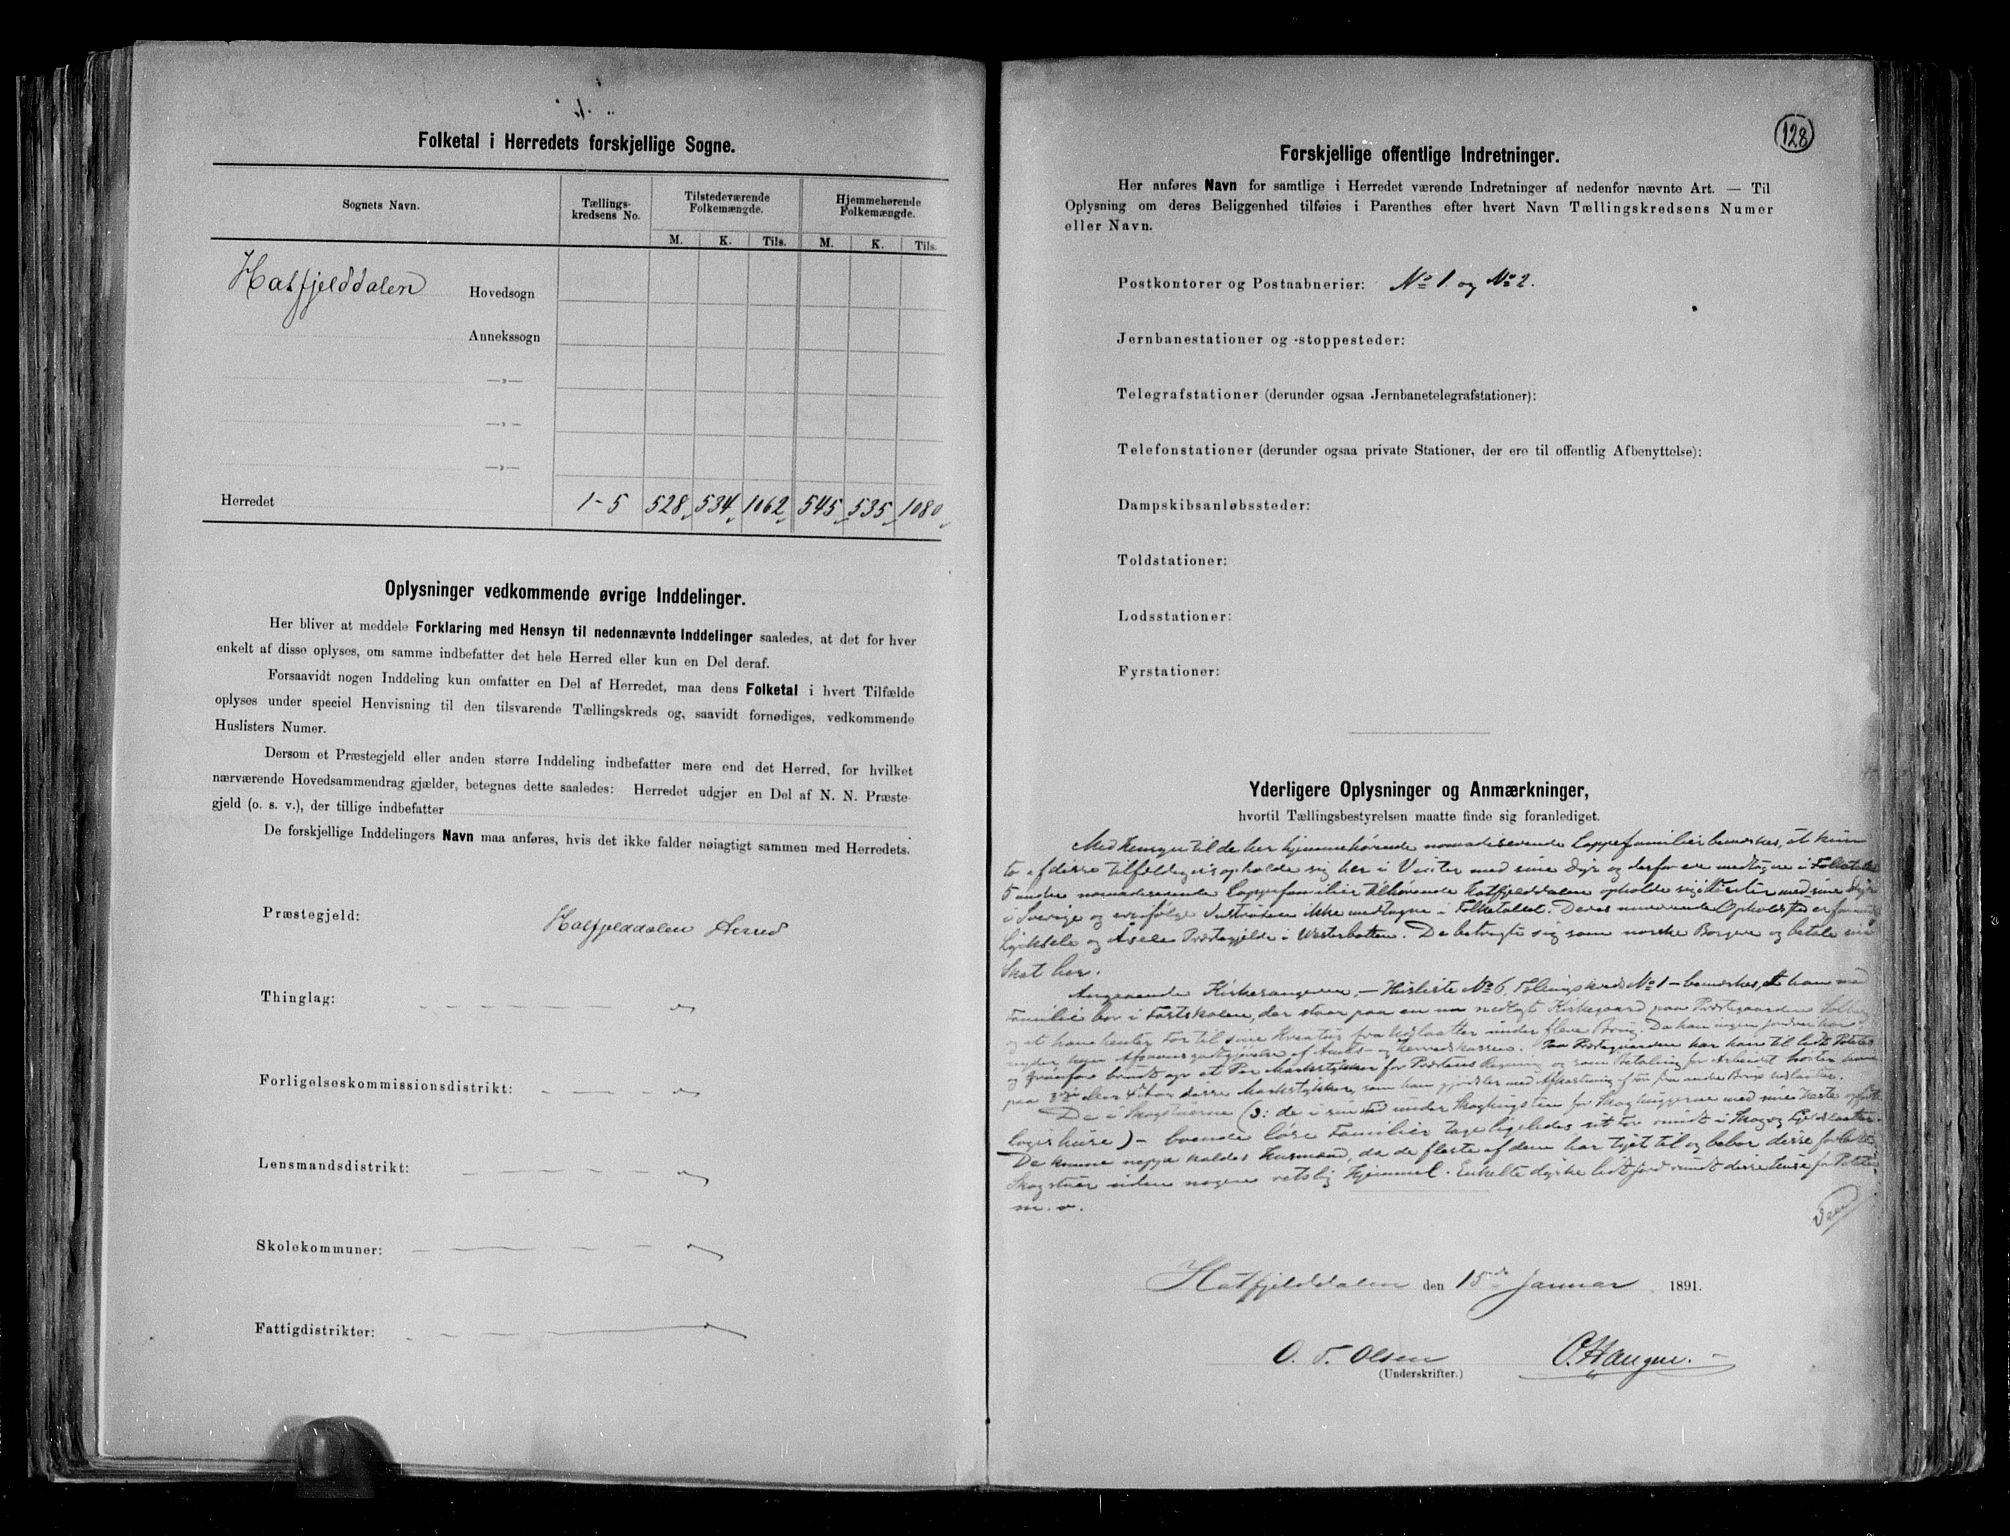 Folketal i Herredets forskjellige Sogne.
Sognets Navn.
Tællings-
kredsens No.
Tilstedeværende
Folkemængde.
Hjemmehørende
Folkemængde.
M. K. Tils. M. K. Tils.
Hatfjelddalen Hovedsogn
Annekssogn
—„—
—„—
—„—
Herredet 1-5 528 534 1062 545 535 1080
Oplysninger vedkommende øvrige Inddelinger.
Her bliver at meddele Forklaring med Hensyn til nedennævnte Inddelinger saaledes, at det for hver
enkelt af disse oplyses, om samme indbefatter det hele Herred eller kun en Del deraf.
Forsaavidt nogen Inddeling kun omfatter en Del af Herredet, maa dens Folketal i hvert Tilfælde
oplyses under speciel Henvisning til den tilsvarende Tællingskreds og, saavidt fornødiges, vedkommende
Huslisters Numer.
Dersom et Præstegjeld eller anden større Inddeling indbefatter mere end det Herred, for hvilket
nærværende Hovedsammendrag gjælder, betegnes dette saaledes: Herredet udgjør en Del af N. N. Præste-
gjeld (o. s. v.), der tillige indbefatter
De forskjellige Inddelingers Navn maa anføres, hvis det ikke falder nøiagtigt sammen med Herredets.
Præstegjeld: Hatfjelddalen Herred
Thinglag:
Forligelseskommissionsdistrikt:
Lensmandsdistrikt:
Skolekommuner:
Fattigdistrikter:
128
Forskjellige offentlige Indretninger.
Her anføres Navn for samtlige i Herredet værende Indretninger af nedenfor nævnte Art. — Til
Oplysning om deres Beliggenhed tilføies i Parenthes efter hvert Navn Tællingskredsens Numer
eller Navn.
Postkontorer og Postaabnerier: No 1. og No 2.
Jernbanestationer og -stoppesteder:
Telegrafstationer (derunder ogsaa Jernbanetelegrafstationer):
Telefonstationer (derunder ogsaa private Stationer, der ere til offentlig Afbenyttelse):
Dampskibsanløbssteder:
Toldstationer:
Lodsstationer:
Fyrstationer:
Yderligere Oplysninger og Anmærkninger,
hvortil Tællingsbestyrelsen maatte finde sig foranlediget.
Med Hensyn til de her hjemmehørende nomadiserende Lappefamilier bemærkes, at kun
to af disse tilfældigvis opholde sig her i Vinter med sine Dyr og derfor ere medtagne i Folketallet
5 andre nomadiserende Lappefamilier tilhørende Hatfjelddalen opholde sig i Vinter med sine Dyr
i Sverige og ere ifølge Instruxen ikke medtagne i Folketallet. Deres nuværende Opholdssted er
Lycksele og Åsele Præstegjelde i Westerbotten. De betragte sig som norske Borgere og betale sin
Skat her.
Angaaende Kirkesangeren, — Husliste No 6, Tællingskreds No 1 — bemærkes, at han med
Familie bor i Fastskolen, der staar paa en nu nedlagt Kirkegaard paa Præstegaarden
og at han henter For til sine Kreatur fra Udslaatter under flere Brug.
af Amts- og Herredskassen. Paa Præstegaarden har han til lidt Potetes
De i Skogstuerne (ɔ: de i
logishuse) — boende løse Familier tage ligeledes sit For rundt i Skog og
De kunne neppe kaldes Husmænd, da de fleste af dem har tyet til og bebor disse forladte
Skogstuer uden nogen retslig Hjemmel. Enkelte dyrke lidt Jord rundt disse Huse for Potetes
m. v.
Hatfjelddalen den 15de Januar 1891.
O. T. Olsen
(Underskrifter.)